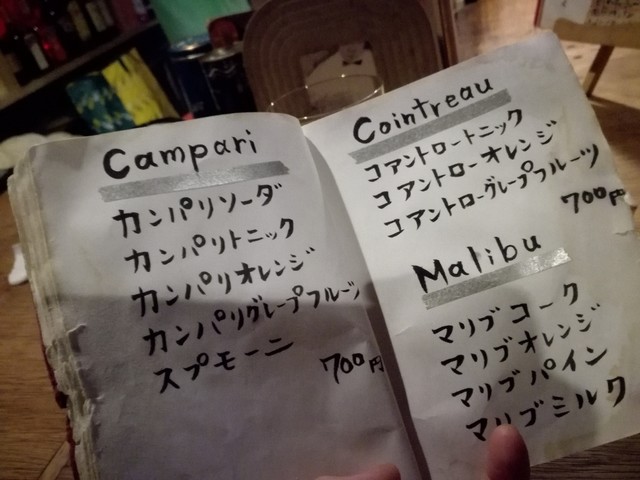 Campari
カンパリソーダ
カンパリトニック
カンパリオレンジ
カンパリグレープフルーツ
スプモーニ
700円
Cointreau
コアントロートニック
コアントローオレンジ
コアントローグレープフルーツ
700円
Malibu
マリブコーク
マリブオレンジ
マリブパイン
マリブミルク